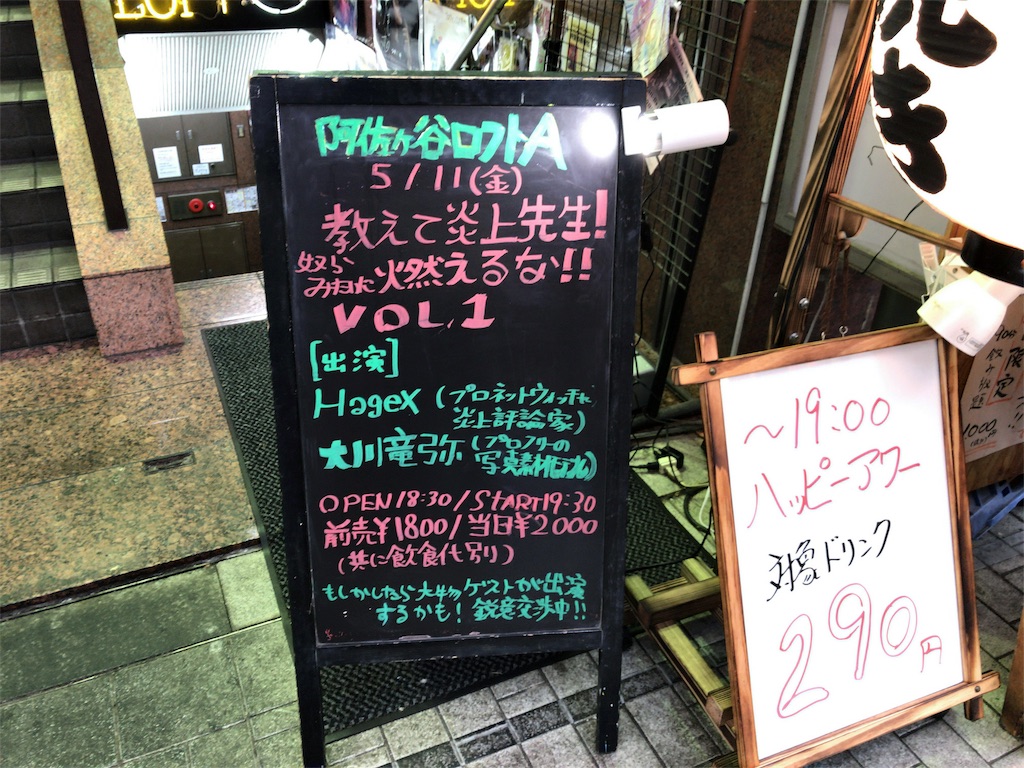 阿佐ヶ谷ロフトA
5/11(金)
教えて炎上先生!
奴らみねた火燃えるな!!
VOL.1
[出演]
Hagex(プロネットウォッチャ
炎上評論家)
大川竜弥(プロフリーの
写真素材モデル)
OPEN18:30/START19:30
前売¥1800/当日¥2000
(共に飲食代別)
もしかしたら大物ゲストが出演
するかも! 鋭意交渉中!!
～19:00
ハッピーアワー
対象ドリンク
290円
限定
飲み放題
1000